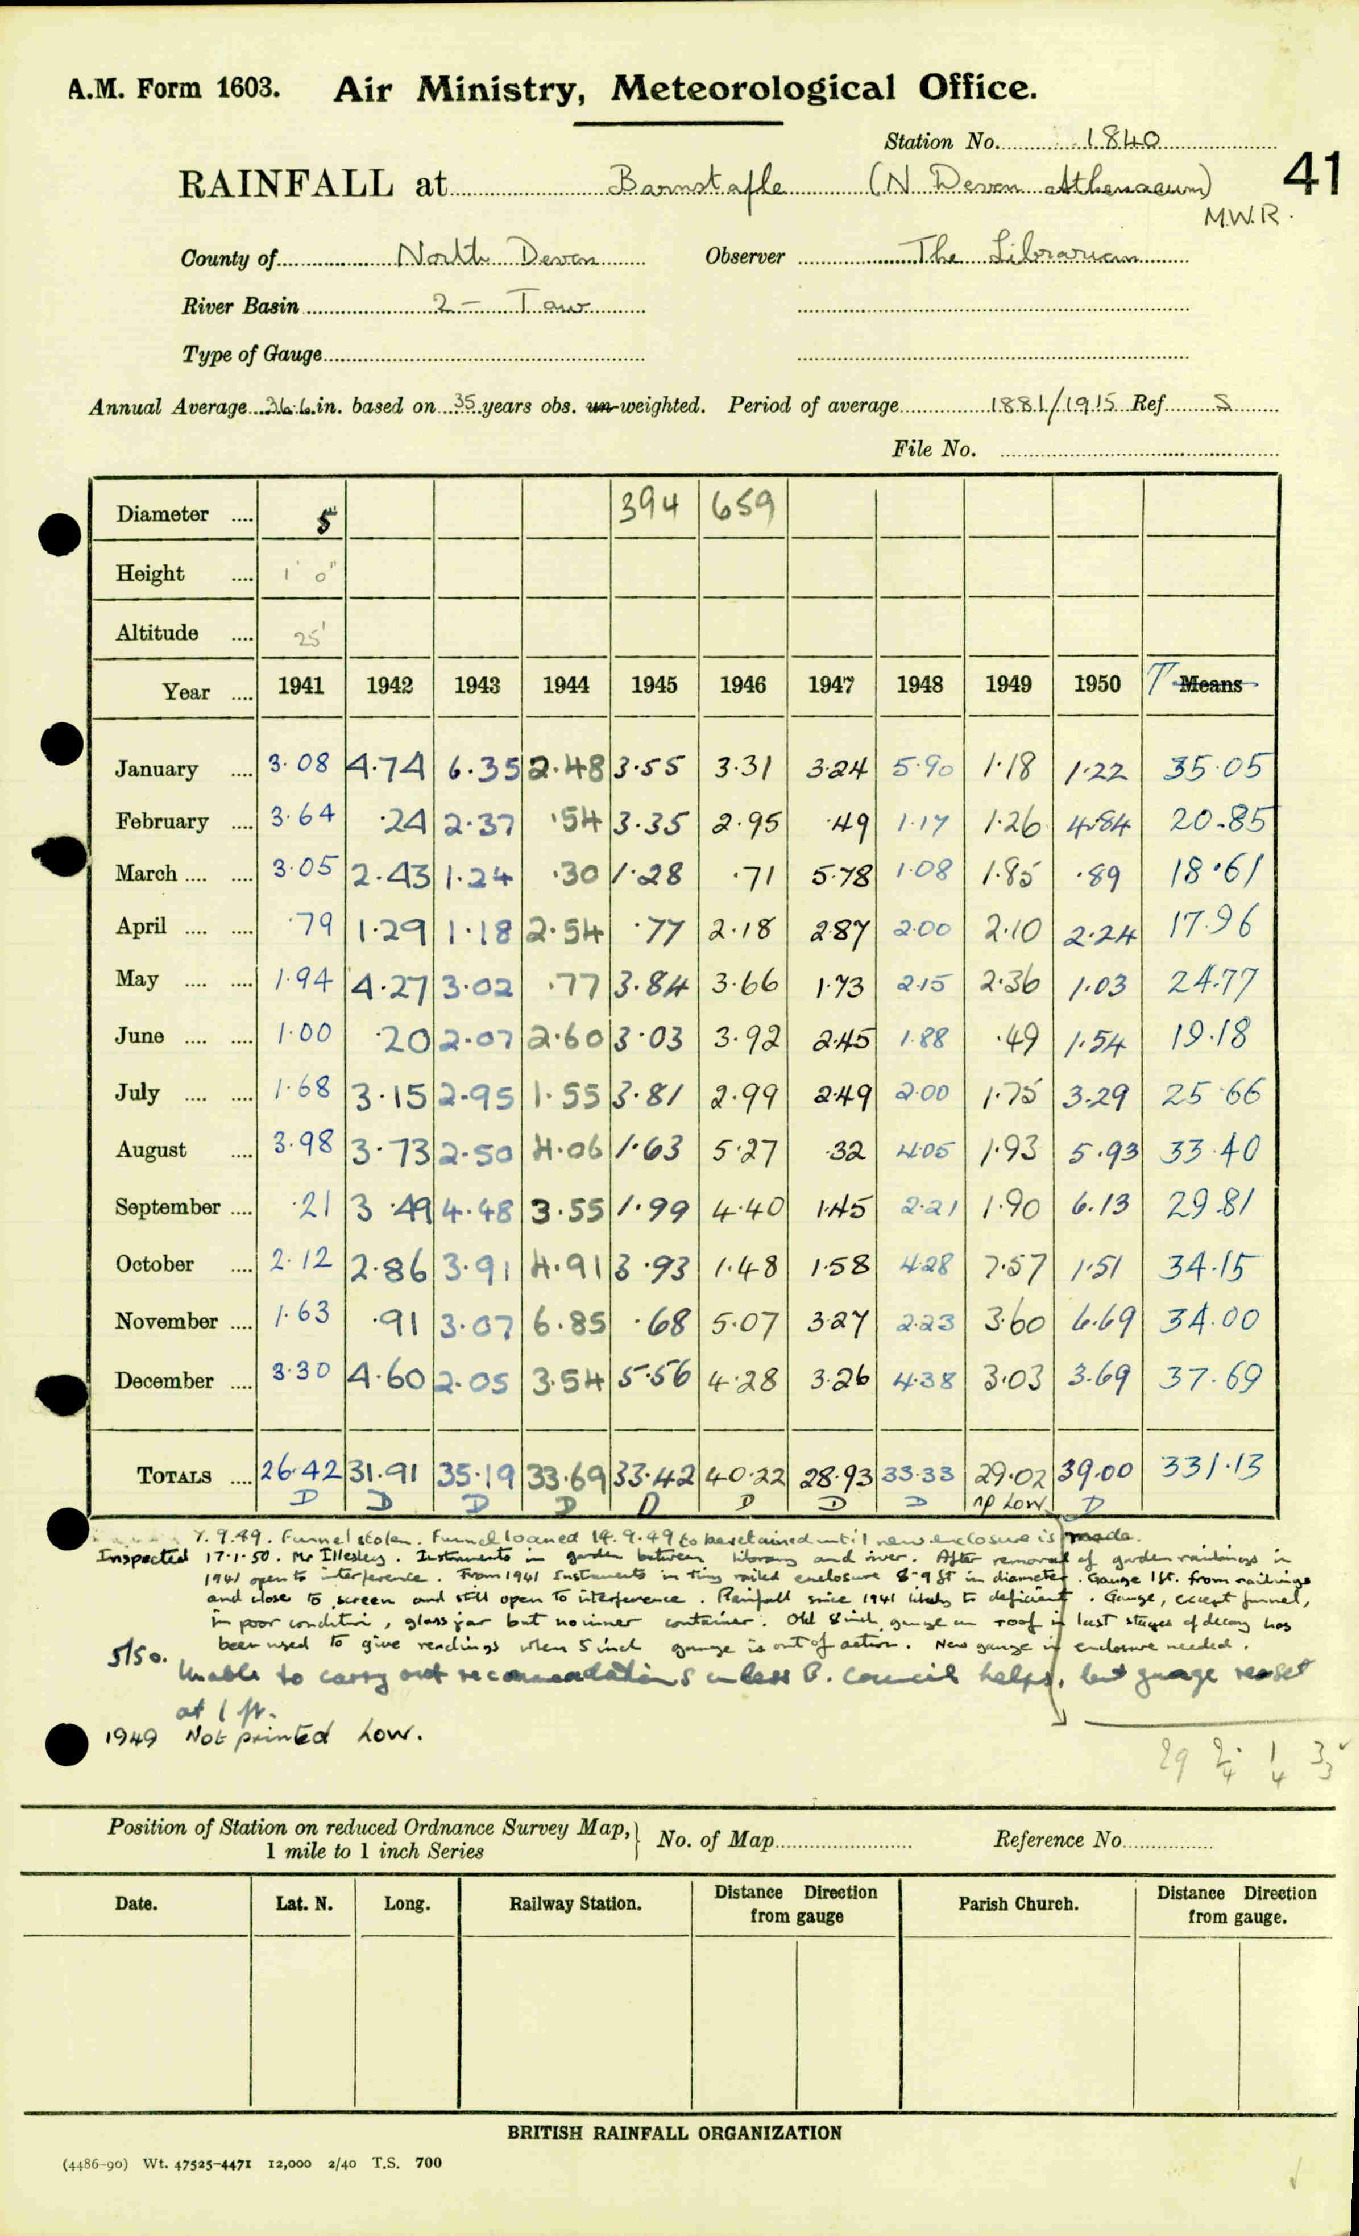 A.M. Form 1603. Air Ministry, Meteorological Office.
Station No. 1840
41
RAINFALL at Barnstaple (N Devon Athenaeum)
M.W.R.
County of North Devon Observer The Librarian
River Basin 2 - Taw
Type of Gauge
Annual Average 36.6 in. based on 35 years obs. un-weighted. Period of average 1881/1915 Ref S
File No.
Diameter .... 5" 394 659
Height .... 1' 0"
Altitude .... 25'
Year .... 1941 1942 1943 1944 1945 1946 1947 1948 1949 1950 T Means
January .... 3.08 4.74 6.35 2.48 3.55 3.31 3.24 5.90 1.18 1.22 35.05
February .... 3.64 .24 2.37 .54 3.35 2.95 .49 1.17 1.26 4.84 20.85
March .... .... 3.05 2.43 1.24 .30 1.28 .71 5.78 1.08 1.85 .89 18.61
April .... .... .79 1.29 1.18 2.54 .77 2.18 2.87 2.00 2.10 2.24 17.96
May .... .... 1.94 4.27 3.02 .77 3.84 3.66 1.73 2.15 2.36 1.03 24.77
June .... .... 1.00 .20 2.07 2.60 3.03 3.92 2.45 1.88 .49 1.54 19.18
July .... .... 1.68 3.15 2.95 1.55 3.81 2.99 2.49 2.00 1.75 3.29 25.66
August .... 3.98 3.73 2.50 4.06 1.63 5.27 .32 4.05 1.93 5.93 33.40
September .... .21 3.49 4.48 3.55 1.99 4.40 1.45 2.21 1.90 6.13 29.81
October .... 2.12 2.86 3.91 4.91 3.93 1.48 1.58 4.28 7.57 1.51 34.15
November .... 1.63 .91 3.07 6.85 .68 5.07 3.27 2.23 3.60 6.69 34.00
December .... 3.30 4.60 2.05 3.54 5.56 4.28 3.26 4.38 3.03 3.69 37.69
TOTALS .... 26.42 31.91 35.19 33.69 33.42 40.22 28.93 33.33 29.02 39.00 331.13
D D D D D D D D np Low D
7.9.49. Funnel stolen. Funnel loaned 14.9.49 to be retained until new enclosure is made.
Inspected 17.1.50. Mr Illesley. Instruments in garden between library and river. After removal of garden railings in
1941 open to interference. From 1941 Instruments in ring railed enclosure 8-9 ft in diameter. Gauge 1ft. from railings
and close to screen and still open to interference. Rainfall since 1941 likely to deficient. Gauge, except funnel,
in poor condition, glass jar but no inner container. Old 8 inch gauge on roof in last stages of decay has
been used to give readings when 5 inch gauge is out of action. New gauge in enclosure needed.
5/50. Unable to carry out recommendations unless B. Council helps, but guage reset
at 1 ft.
1949 Not printed Low.
29 2/4 1/4 33
Position of Station on reduced Ordnance Survey Map, 1 mile to 1 inch Series No. of Map Reference No.
Date. Lat. N. Long. Railway Station. Distance from gauge Direction Parish Church. Distance Direction from gauge.
BRITISH RAINFALL ORGANIZATION
(4486-90) Wt. 47525-4471 12,000 2/40 T.S. 700